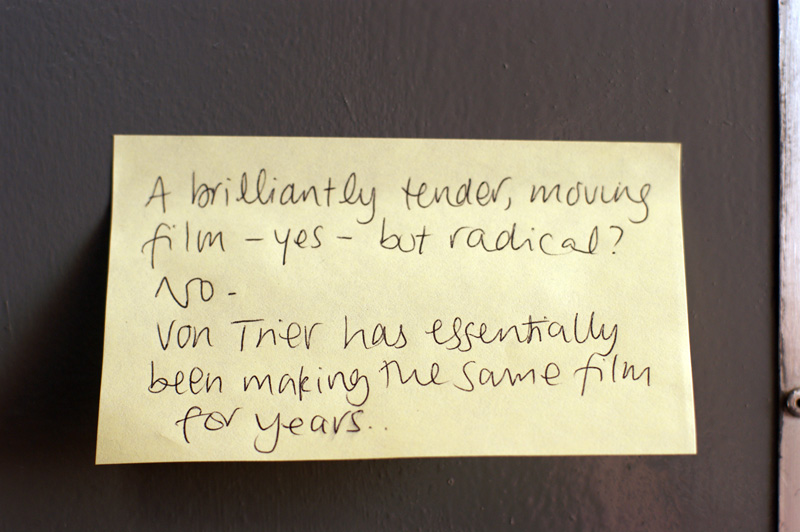 A brilliantly tender, moving
film - yes - but radical?
NO -
Von Trier has essentially
been making the same film
for years..